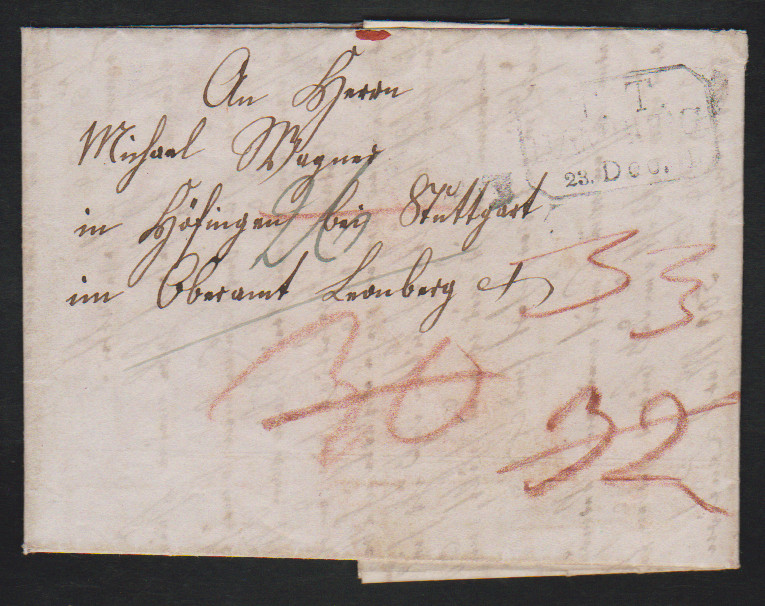 An Herrn
Michael Wagner
in Höfingen bei Stuttgart
im Oberamt Leonberg
T. T.
23. Dec.
26
33
30
32